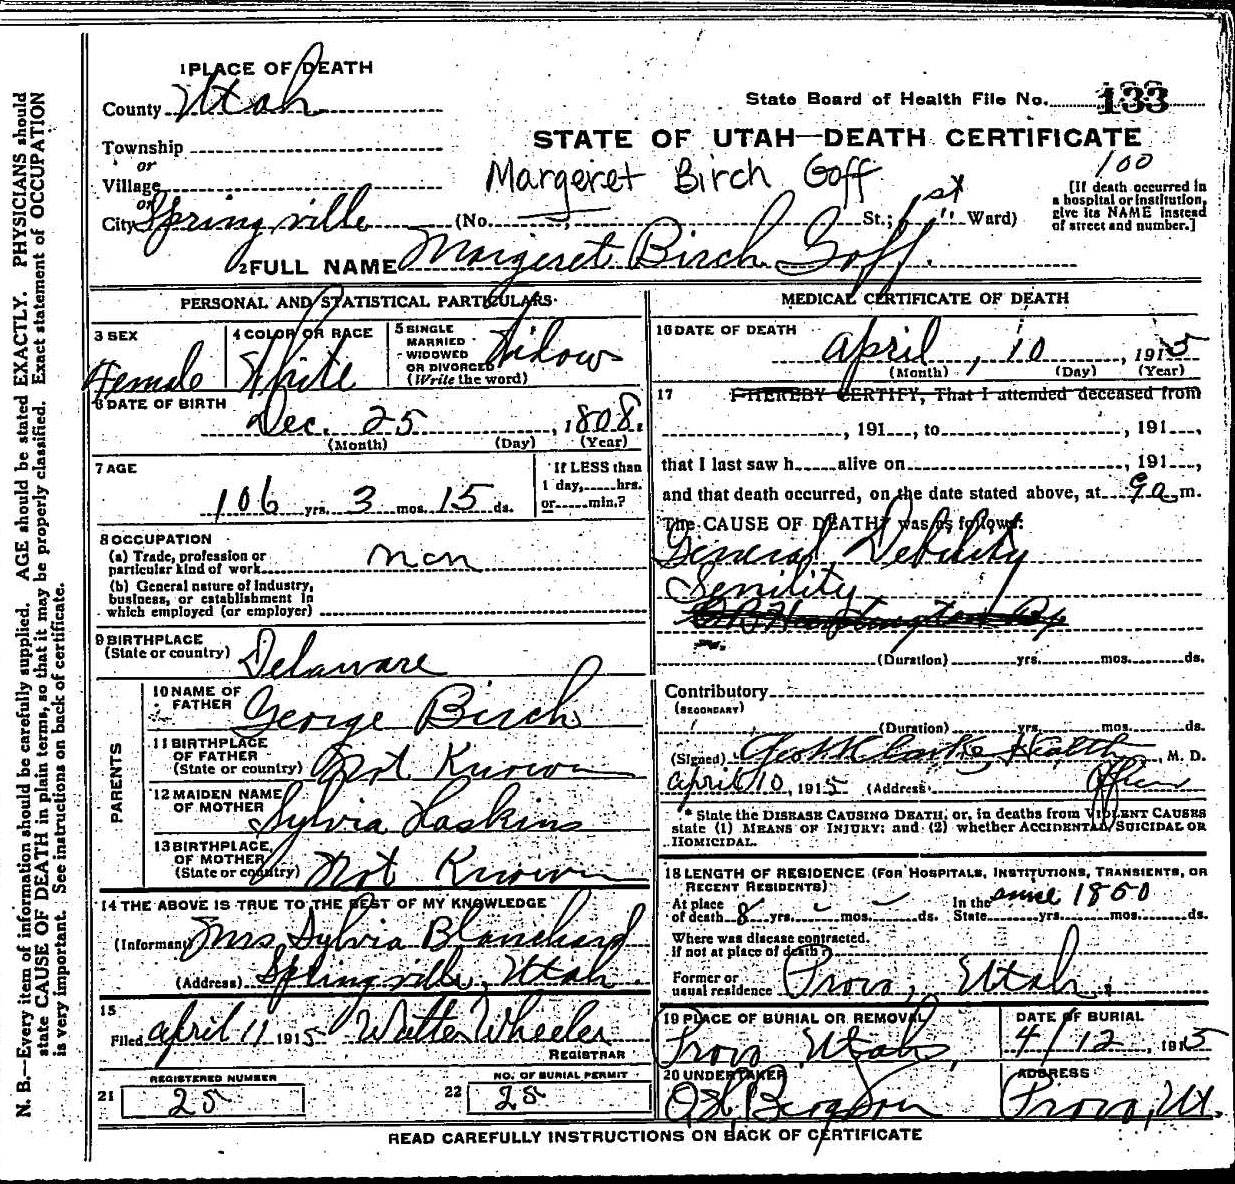 1 PLACE OF DEATH
County Utah
Township
or
Village
or
City Springville (No. St.; 1st Ward)
State Board of Health File No. 133
STATE OF UTAH—DEATH CERTIFICATE
100
Margeret Birch Goff
[If death occurred in
a hospital or institution,
give its NAME instead
of street and number.]
2 FULL NAME Margeret Birch Goff.
PERSONAL AND STATISTICAL PARTICULARS
3 SEX
Female
4 COLOR OR RACE
White
5 SINGLE
MARRIED
WIDOWED
OR DIVORCED
(Write the word)
Widow
6 DATE OF BIRTH
Dec. 25, 1808.
(Month) (Day) (Year)
7 AGE
106 yrs. 3 mos. 15 ds.
If LESS than
1 day, hrs.
or min.?
8 OCCUPATION
(a) Trade, profession or
particular kind of work
(b) General nature of industry,
business, or establishment in
which employed (or employer)
9 BIRTHPLACE
(State or country) Delaware
PARENTS
10 NAME OF
FATHER George Birch
11 BIRTHPLACE
OF FATHER
(State or country) Not Known
12 MAIDEN NAME
OF MOTHER Sylvia Haskins
13 BIRTHPLACE
OF MOTHER
(State or country) Not Known
14 THE ABOVE IS TRUE TO THE BEST OF MY KNOWLEDGE
(Informant) Mrs Sylvia Blanchard
(Address) Springville, Utah.
15
Filed April 11 1915 Walter Wheeler
REGISTRAR
21 REGISTERED NUMBER
25
22 NO. OF BURIAL PERMIT
25
MEDICAL CERTIFICATE OF DEATH
16 DATE OF DEATH
April, 10, 1915
(Month) (Day) (Year)
17 I HEREBY CERTIFY, That I attended deceased from
, 191 , to , 191 ,
that I last saw h alive on , 191 ,
and that death occurred, on the date stated above, at 9 a m.
The CAUSE OF DEATH* was as follows:
General Debility
Senility
(Duration) yrs. mos. ds.
Contributory
(SECONDARY)
(Duration) yrs. mos. ds.
(Signed) Health, M. D.
April 10, 1915 (Address) Officer
* State the DISEASE CAUSING DEATH, or, in deaths from VIOLENT CAUSES
state (1) MEANS OF INJURY; and (2) whether ACCIDENTAL, SUICIDAL OR
HOMICIDAL.
18 LENGTH OF RESIDENCE (FOR HOSPITALS, INSTITUTIONS, TRANSIENTS, OR
RECENT RESIDENTS)
At place
of death 8 yrs. mos. ds. In the State since 1850 yrs. mos. ds.
Where was disease contracted.
if not at place of death?
Former or
usual residence Provo, Utah.
19 PLACE OF BURIAL OR REMOVAL
Provo Utah,
DATE OF BURIAL
4/12, 1915
20 UNDERTAKER
ADDRESS
Provo, Ut.
READ CAREFULLY INSTRUCTIONS ON BACK OF CERTIFICATE
N. B.—Every item of information should be carefully supplied. AGE should be stated EXACTLY. PHYSICIANS should
state CAUSE OF DEATH in plain terms, so that it may be properly classified. Exact statement of OCCUPATION
is very important. See instructions on back of certificate.